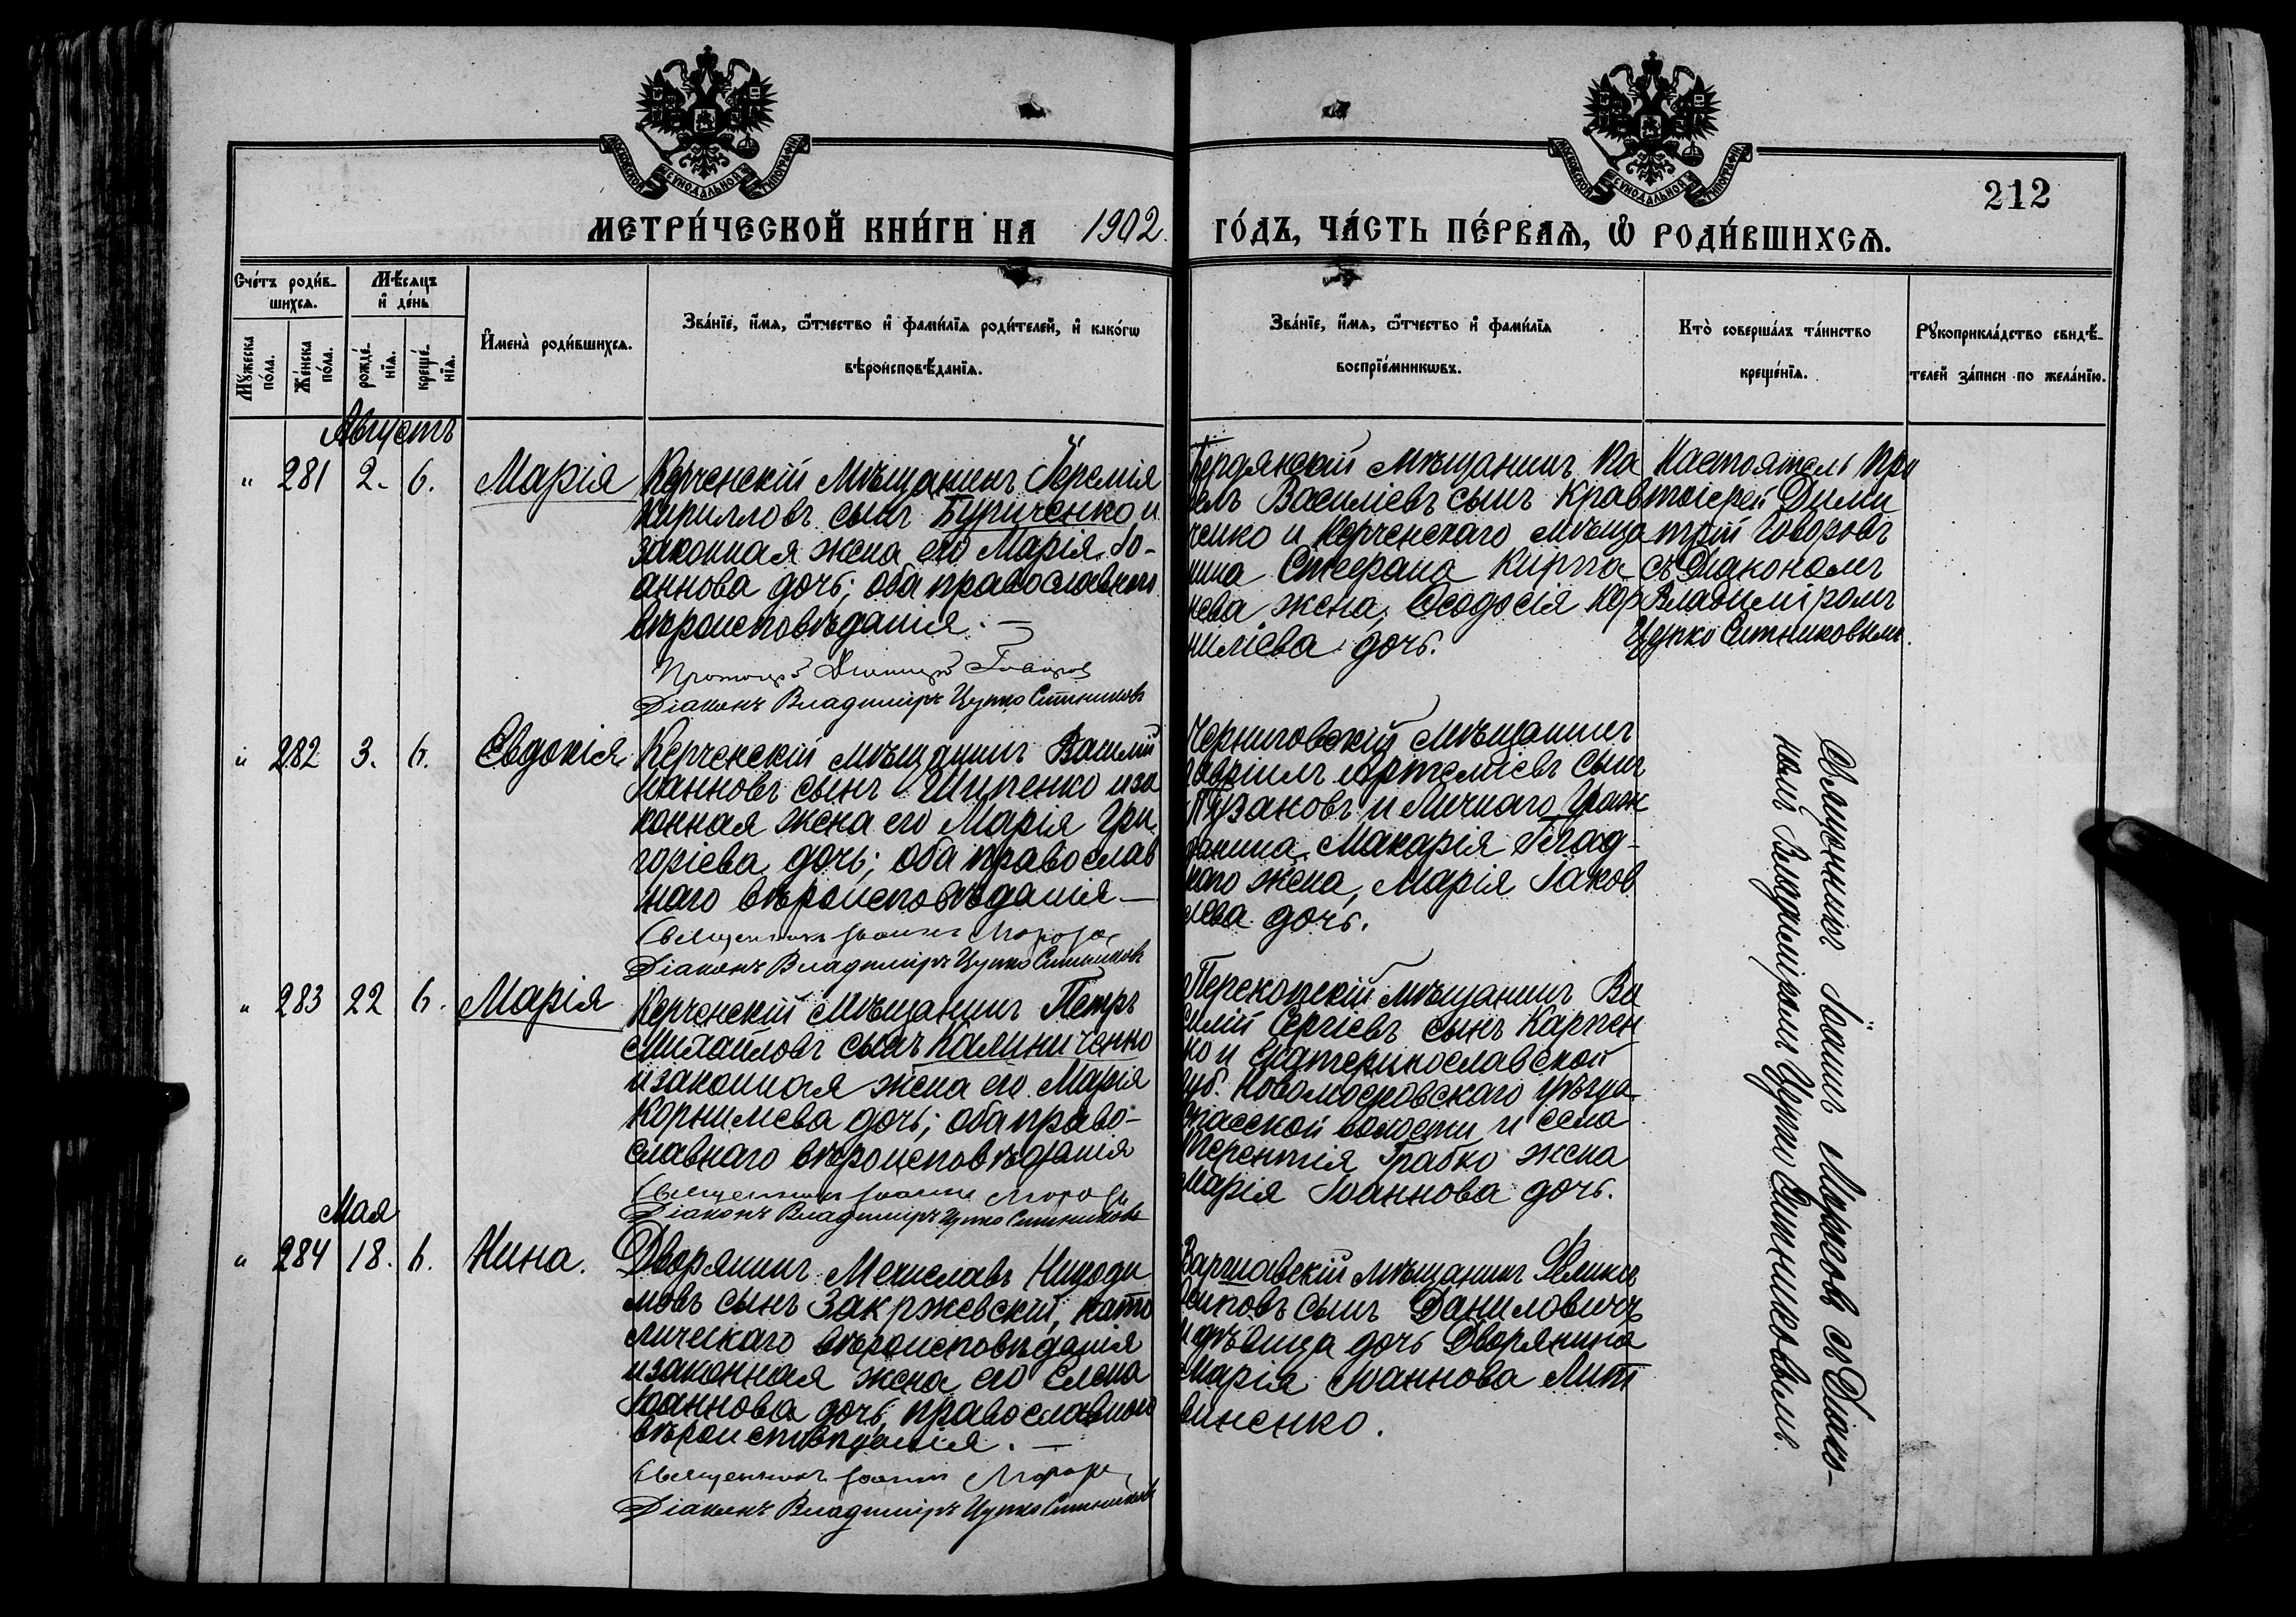 МОСКОВСКОЙ СѴНОДАЛЬНОЙ ТИПОГРАФІИ
МОСКОВСКОЙ СѴНОДАЛЬНОЙ ТИПОГРАФІИ
212
МЕТРИ́ЧЕСКОЙ КНИ́ГИ НА 1902. ГО́ДЪ, ЧА́СТЬ ПЕ́РВАѦ, Ѡ҆ РОДИ́ВШИХСѦ.
Сче́тъ роди́в-
шихсѧ.
Мꙋ́жеска по́ла.
Же́нска по́ла.
Мѣ́сѧцъ
и҆ де́нь
рожде́-
нїѧ.
креще́-
нїѧ.
И҆мена̀ роди́вшихсѧ.
Зва́нїе, и҆́мѧ, ѻ҆́тчество и҆ фами́лїѧ роди́телей, и҆ како́гѡ
вѣроисповѣ́данїѧ.
Зва́нїе, и҆́мѧ, ѻ҆́тчество и҆ фами́лїѧ
воспрїе́мникѡвъ.
Кто̀ соверша́лъ та́инство
креще́нїѧ.
Рꙋкоприкла́дство свидѣ́-
телей за́писи по жела́нїю.
Августъ
" 281 2. 6. Марія
Керченскій мѣщанинъ Іеремія
Кирилловъ сынъ Буриченко и
законная жена его Марія Іо-
аннова дочь; оба православнаго
вѣроисповѣданія.—
Діаконъ Владиміръ Цупко Ситниковъ
Бердянскій мѣщанинъ Па
велъ Василіевъ сынъ Крав
ченко и Керченскаго мѣща
нина Стефана Кирпа
чева жена, Ѳеодосія Кор
нилiева дочь.
Настоятель Про
тоіерей Дими
трій Говоровъ
съ Діакономъ
Владиміромъ
Цупко Ситниковымъ.
" 282 3. 6. Евдокія
Керченскій мѣщанинъ Василій
Іоанновъ сынъ Шипенко и за
конная жена его Марія Гри
горіева дочь; оба православ
наго вѣроисповѣданія—
Священникъ Іоаннъ Морозъ
Діаконъ Владиміръ Цупко Ситниковъ
Черниговскій мѣщанинъ
Гавріилъ Артеміевъ сынъ
Пузановъ и Личнаго Граж
данина Макарія Глад-
каго жена, Марія Іаков
лева дочь.
" 283 22 6. Марія
Керченскій мѣщанинъ Петръ
Михайловъ сынъ Калиниченко
и законная жена его Марія
Корнилiева дочь; оба право-
славнаго вѣроисповѣданія
Священникъ Іоаннъ Морозъ
Діаконъ Владиміръ Цупко Ситниковъ
Перекопскій мѣщанинъ Ва
силій Сергіевъ сынъ Карпен
ко и Екатеринославской
губ. Новомосковскаго уѣзда
Спасской волости и села
Терентія Грабко жена
Марія Іоаннова дочь.
Мая
" 284 18. 6. Нина.
Дворянинъ Мечиславъ Никоди
мовъ сынъ Закржевскій, като
лическаго вѣроисповѣданія
и законная жена его Елена
Іоаннова дочь, православнаго
вѣроисповѣданія.—
Священникъ Іоаннъ Морозъ
Діаконъ Владиміръ Цупко Ситниковъ
Варшавскій мѣщанинъ Феликсъ
Осиповъ сынъ Даниловичъ
и дѣвица дочь Дворянина
Марія Іоаннова Лит
виненко.
Священникъ Іоаннъ Морозовъ съ Діако-
номъ Владиміромъ Цупко Ситниковымъ.